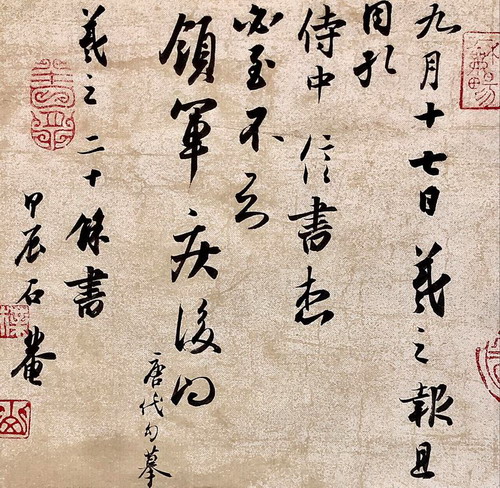 九月十七日羲之報且
因孔
侍中信書想
必至不知
領軍疾後問
唐代勾摹
羲之二十餘書
甲辰石菴